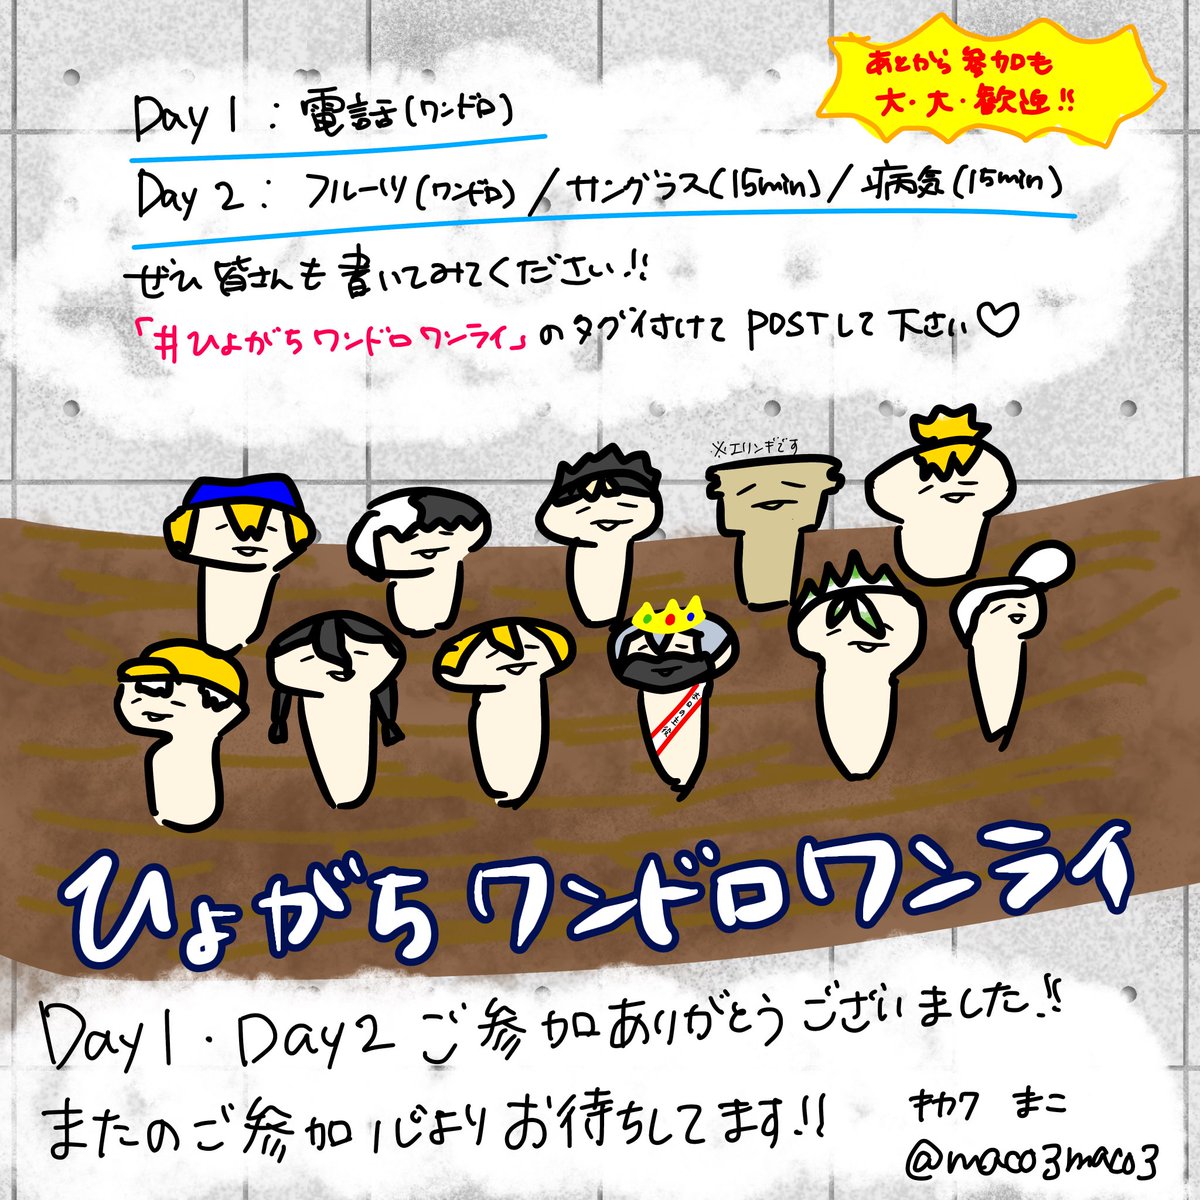 あとから参加も
大・大・歓迎!!
Day1:電話(ワンドロ)
Day2:フルーツ(ワンドロ)/サングラス(15min)/病気(15min)
ぜひ皆さんも書いてみてください!!
「#ひよがちワンドロワンライ」のタグ付けてPOSTして下さい♡
※エリンギです
ひよがちワンドロワンライ
Day1・Day2ご参加ありがとうございました!!
またのご参加心よりお待ちしてます!!
キカワ まこ
@maco3maco3